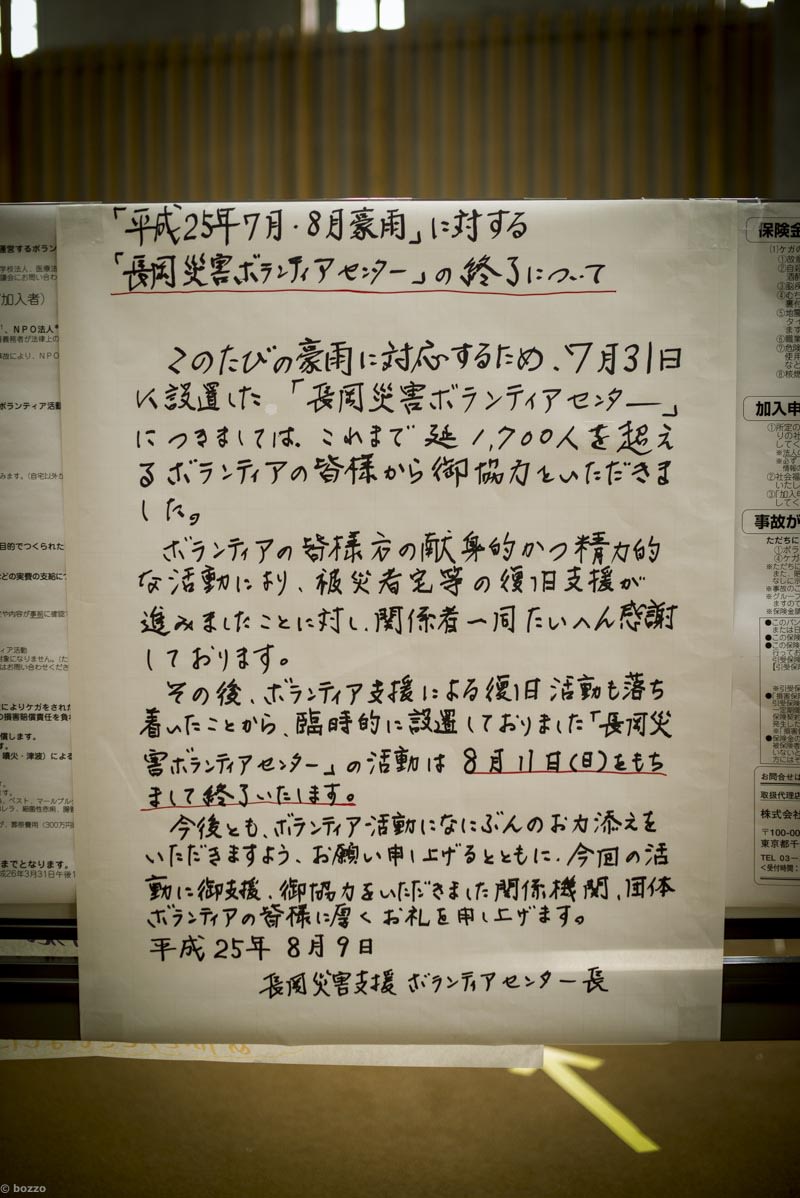 「平成25年7月・8月豪雨」に対する
「長岡災害ボランティアセンター」の終了について
このたびの豪雨に対応するため、7月31日
に設置した「長岡災害ボランティアセンター」
につきましては、これまで延1,700人を超え
るボランティアの皆様から御協力をいただきま
した。
ボランティアの皆様方の献身的かつ精力的
な活動により、被災者宅等の復旧支援が
進みましたことに対し、関係者一同たいへん感謝
しております。
その後、ボランティア支援による復旧活動も落ち
着いたことから、臨時的に設置しておりました「長岡災
害ボランティアセンター」の活動は8月11日(日)をもち
まして終了いたします。
今後とも、ボランティア活動になにぶんのお力添えを
いただきますよう、お願い申し上げるとともに、今回の活
動に御支援、御協力をいただきました関係機関、団体
ボランティアの皆様に厚くお礼を申し上げます。
平成25年8月9日
長岡災害支援 ボランティアセンター長
運営するボラン
加入者）
、NPO法人
ボランティア活動
目的でつくられた
などの実費の支給に
によりケガをされた
の損害賠償責任を負
償します。
噴火・津波）による
までとなります。
保険金
加入申
事故が
ただちに
お問合せは
取扱代理店
株式会社
〒100-00
東京都千
TEL 03-
＜受付時間：
© bozzo